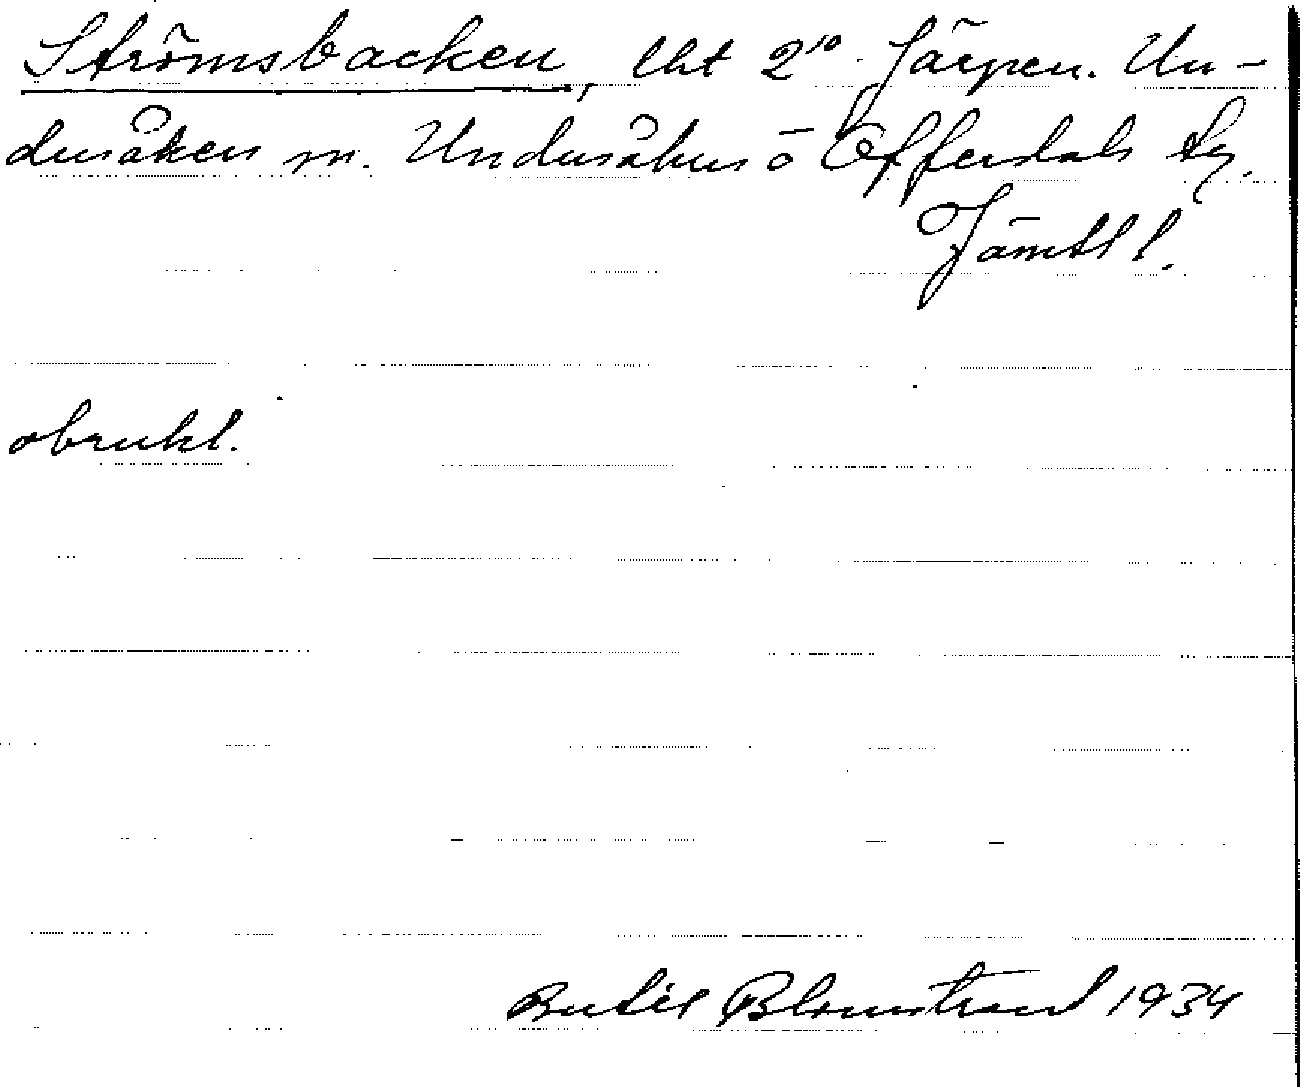 Strömsbacken, lht 2¹⁰ Järpen. Un-
dersåkers sn. Undersåkers o Offerdals tg.
Jämtl l.
obrukl.
Bertil Blomstrand 1934